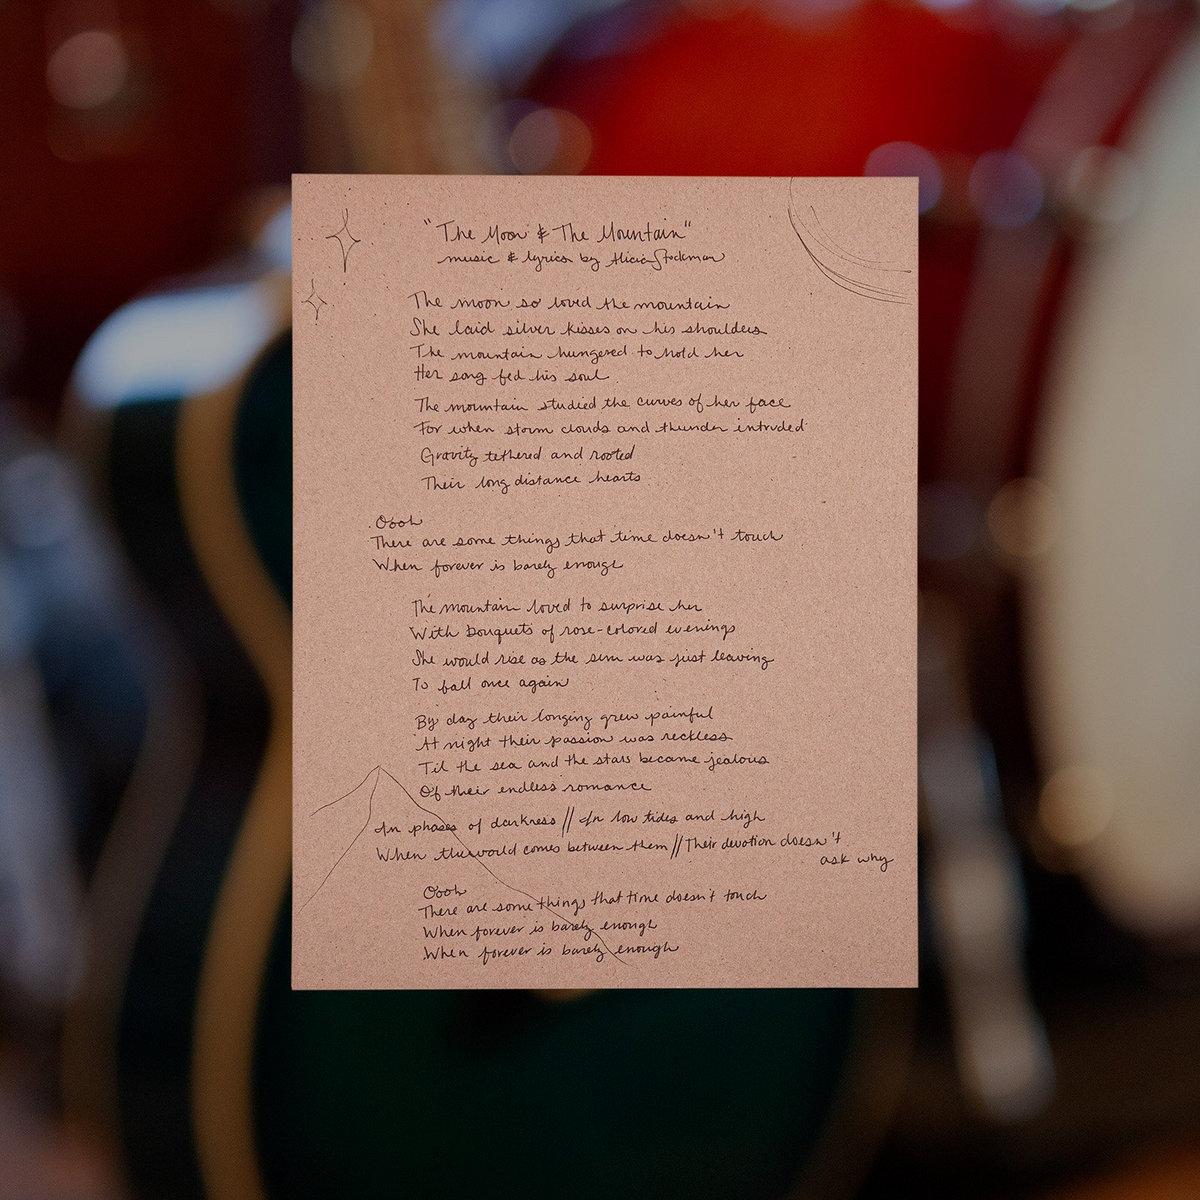 "The Moon & The Mountain"
music & lyrics by Alicia Stockman
The moon so loved the mountain
She laid silver kisses on his shoulders
The mountain hungered to hold her
Her song fed his soul
The mountain studied the curves of her face
For when storm clouds and thunder intruded
Gravity tethered and rooted
Their long distance hearts
Oooh
There are some things that time doesn't touch
When forever is barely enough
The mountain loved to surprise her
With bouquets of rose-colored evenings
She would rise as the sun was just leaving
To fall once again
By day their longing grew painful
At night their passion was reckless
Til the sea and the stars became jealous
Of their endless romance
In phases of darkness // In low tides and high
When the world comes between them // Their devotion doesn't
ask why
Oooh
There are some things that time doesn't touch
When forever is barely enough
When forever is barely enough